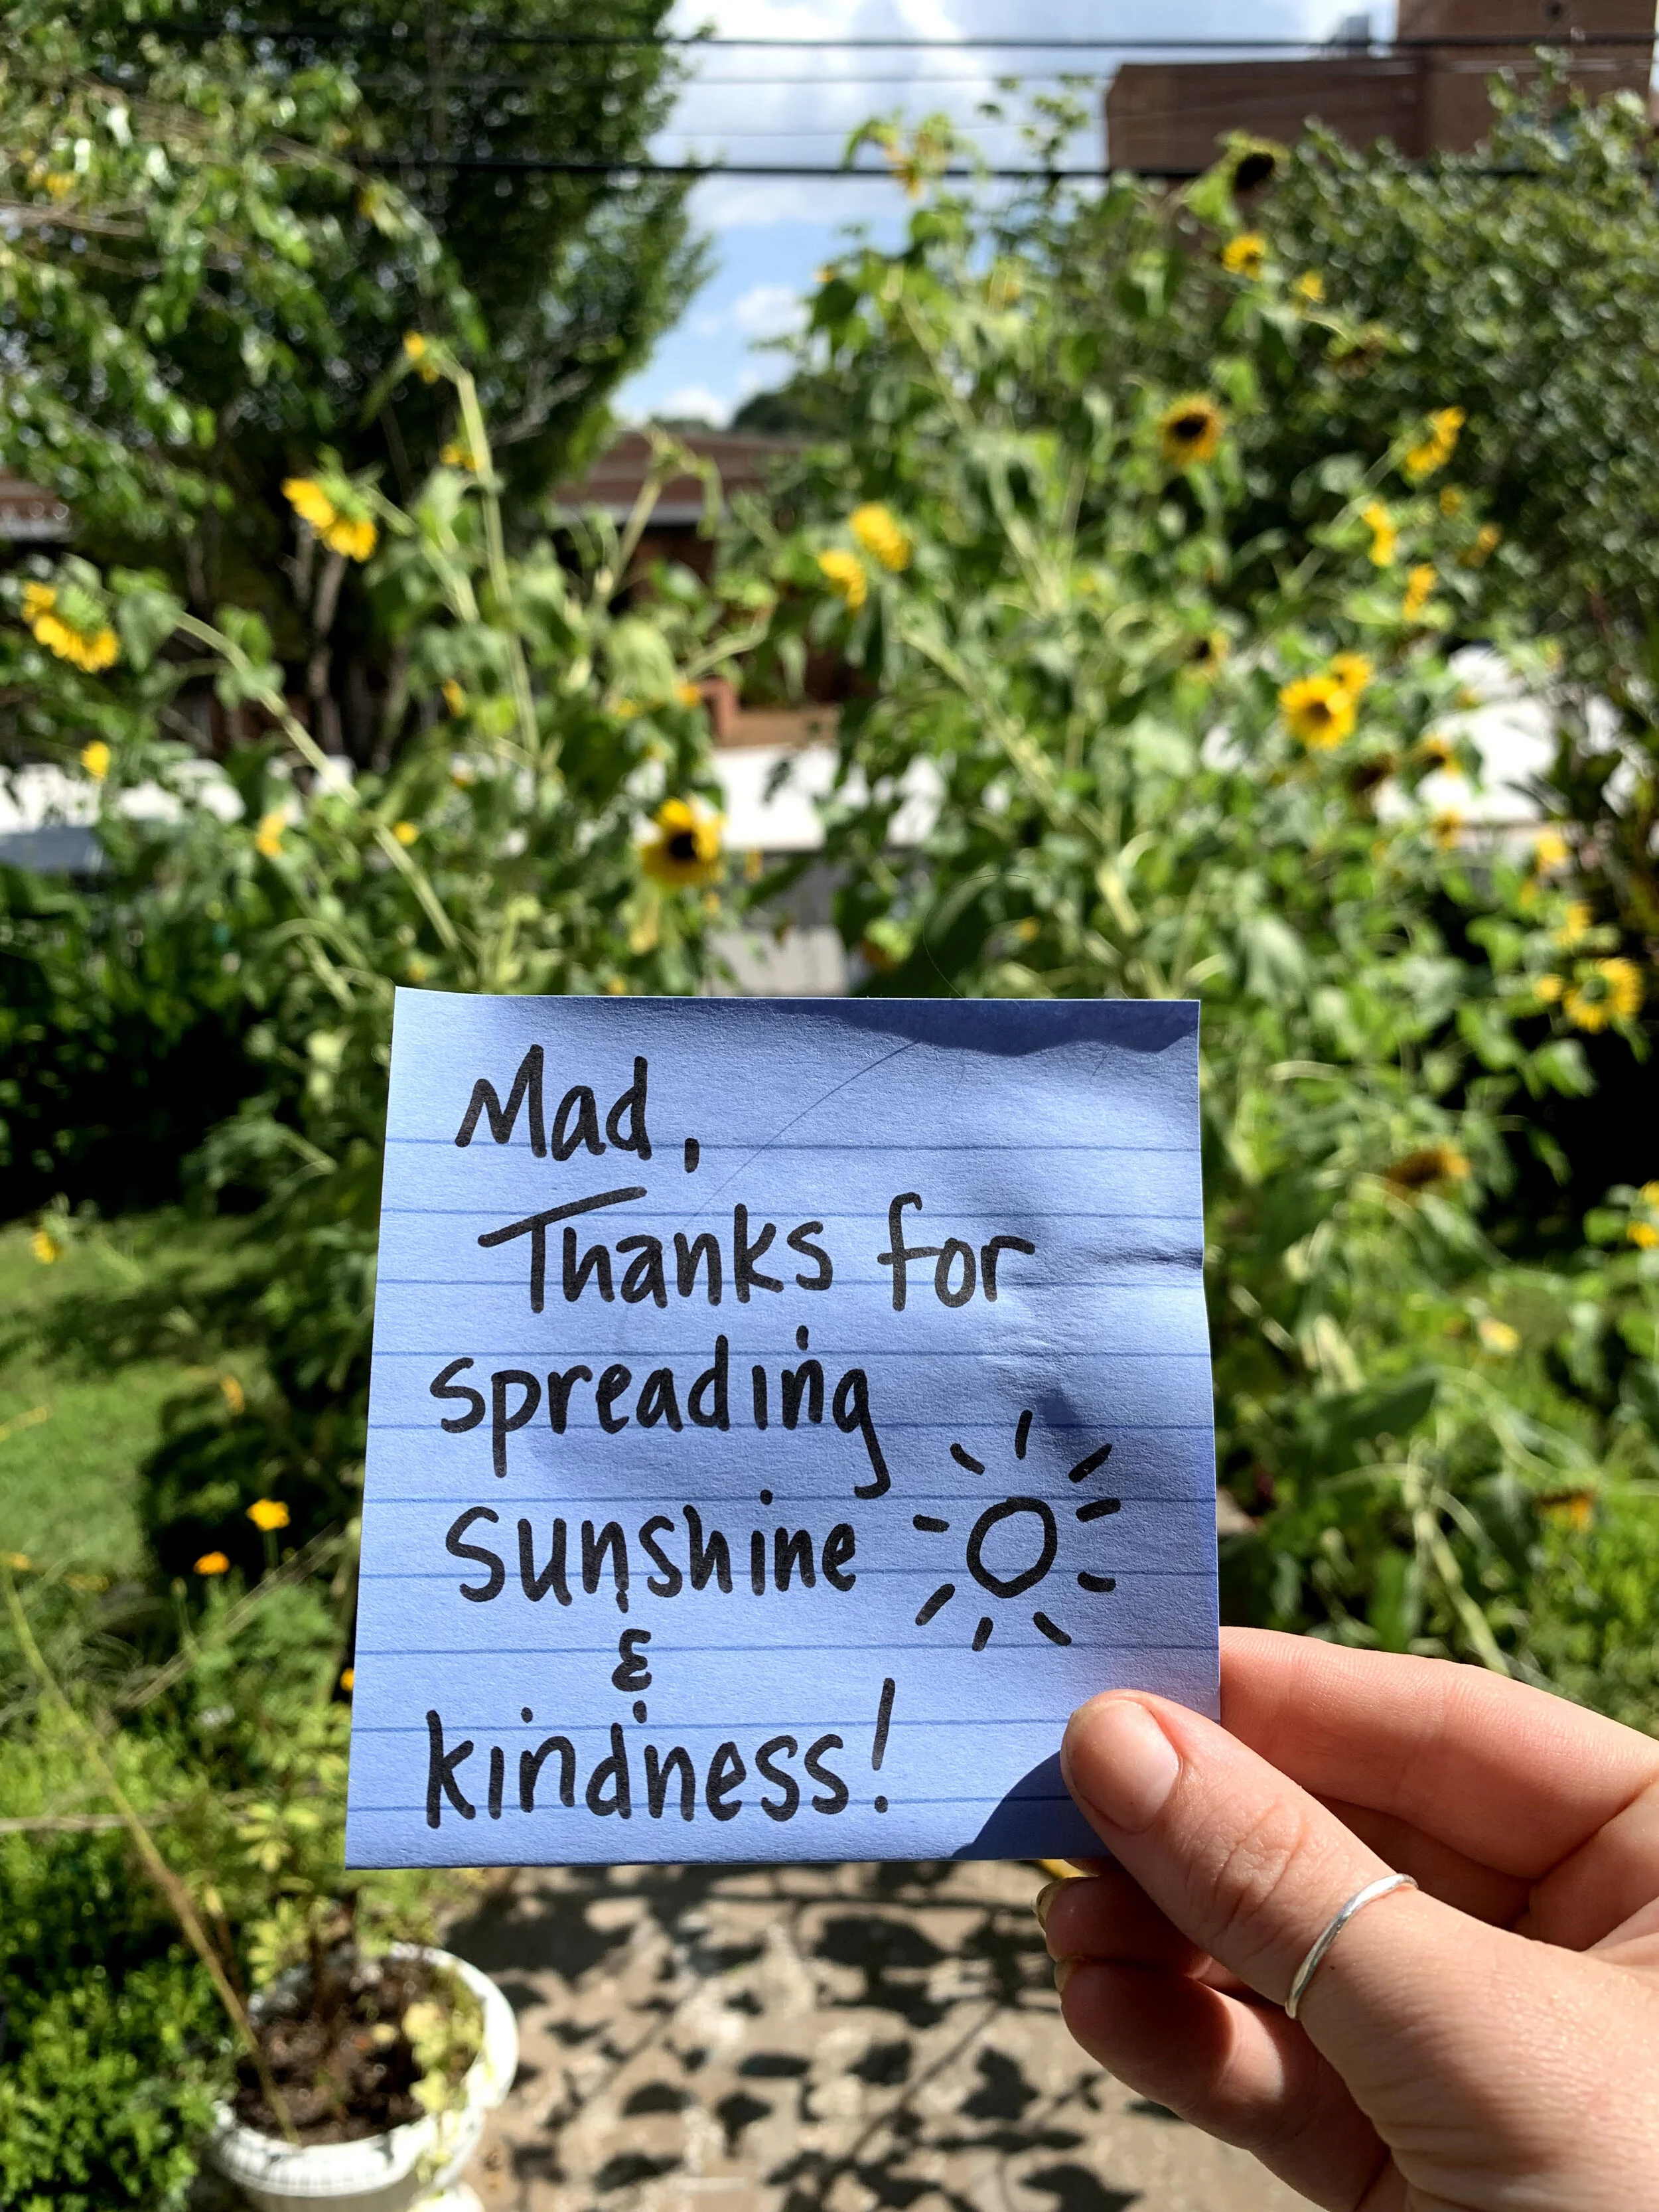 Mad,
Thanks for
spreading
sunshine
&
kindness!